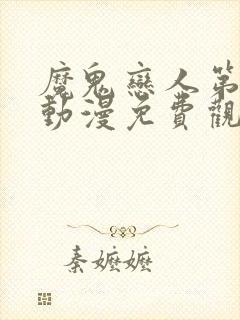 魔鬼戀人第
動漫免費觀
秦嬤嬤